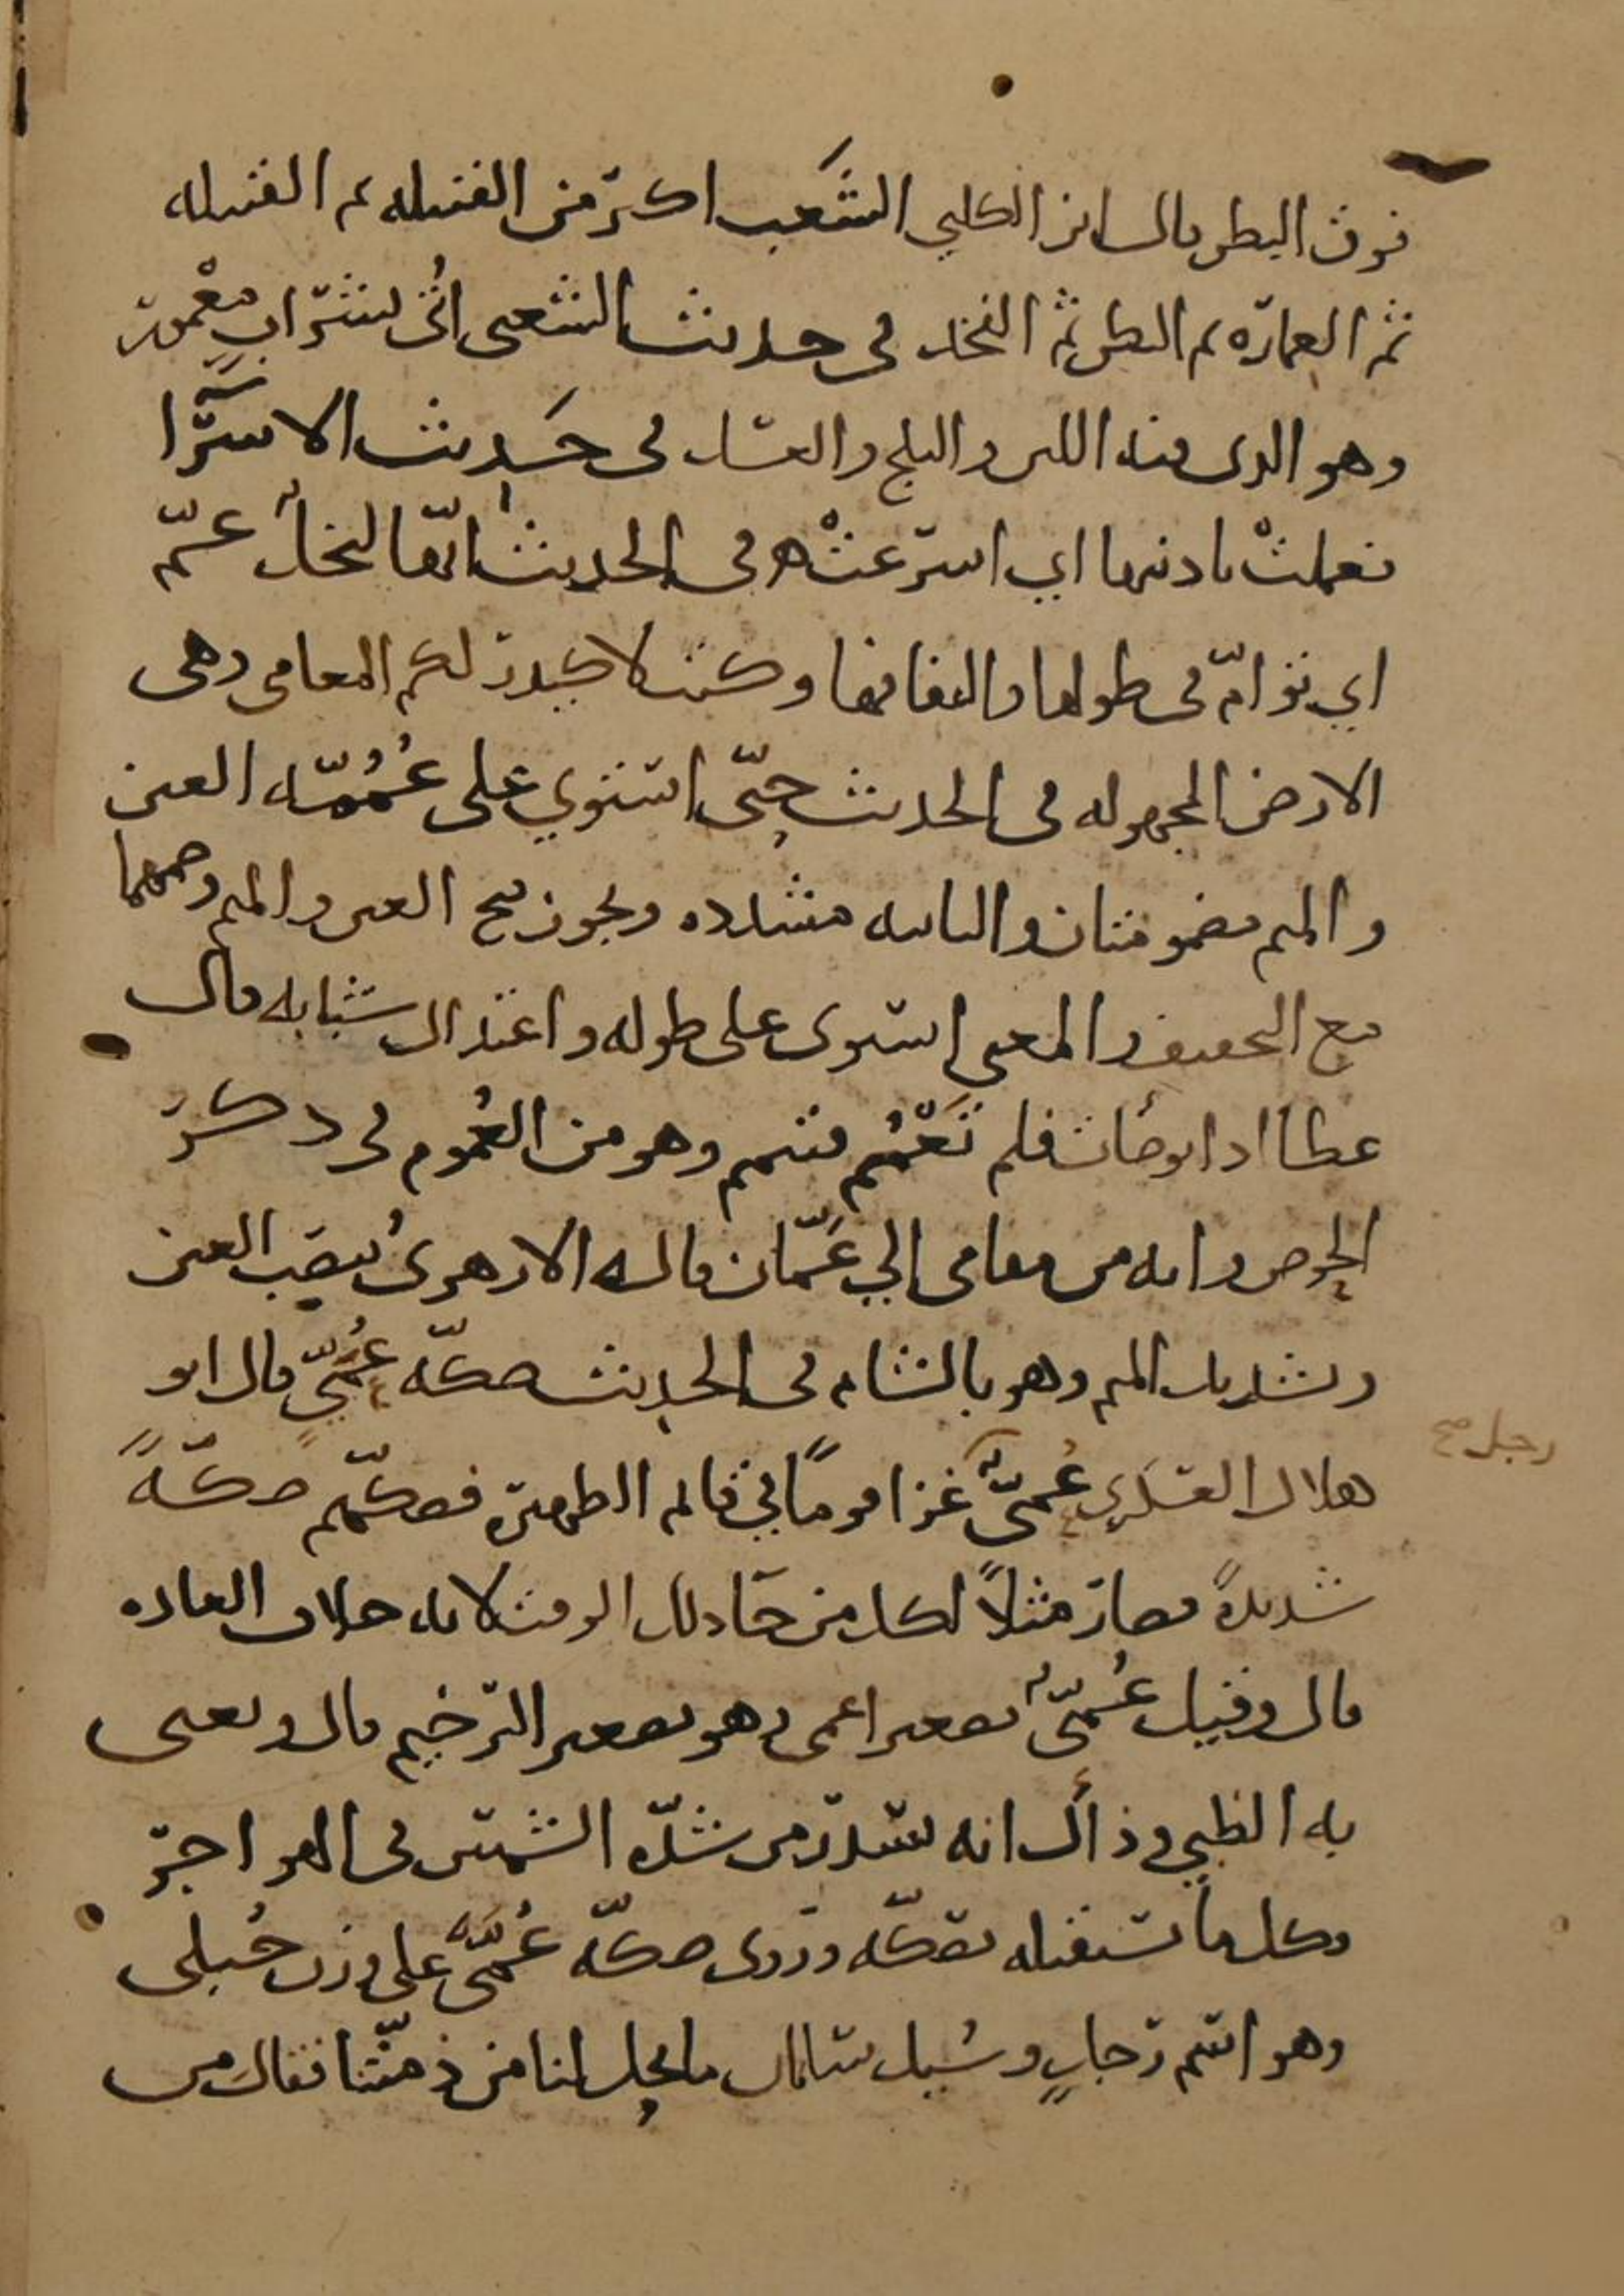 فوق البطن قال ابن الكلبي الشَعب اكبر من القبيله ثم القبيله
ثم العماره ثم البطن ثم الفخذ في حديث الشعبى اُتى بشراب معْمول
وهو الذى فيه اللبن والثلج والعسل فى حَديث الاسرا
فعملتْ باذنيها اي اسرعتْ فى الحديث انّها لنخلٌ عُمّ
اي توامّ فى طولها والتفافها وكتب لاكيدر لكم المعامى وهى
الارض المجهوله فى الحديث حتّى استوي على عُمُمّه العين
والميم مضمومتان والثانيه مشدده ويجوز فتح العين والميم وضمهما
مع التخفيف والمعنى استوى على طوله واعتدال شبابه قال
عطا اذا توضات فلم تَعْمُم فتيمم وهو من العُموم فى ذكر
الحوض وانه من مقامى الي عَمّان قاله الازهرى بنصب العين
وتشديد الميم وهو بالشام فى الحديث صكّه عُمَيّ قال ابو
هلال العسكري عُمىٌّ غزا قومًا في قايم الظهيرة فصكّهم صكّةً
رجل صح
شديدةً فصار مثلاً لكل من جا ذلك الوقت لانه خلاف العاده
قال وقيل عُمىٌّ تصغير اعمى وهو تصغير الترخيم قال ويعنى
به الظبي وذاك انه يسدر من شدّه الشمس فى الهواجر
وكل ما تستقبله تصكّه وروى صكّه عُمّى على وزن حُبلى
وهو اسم رجلٍ وسُيل سلمان ما يحل لنا من ذمّتنا فقال من